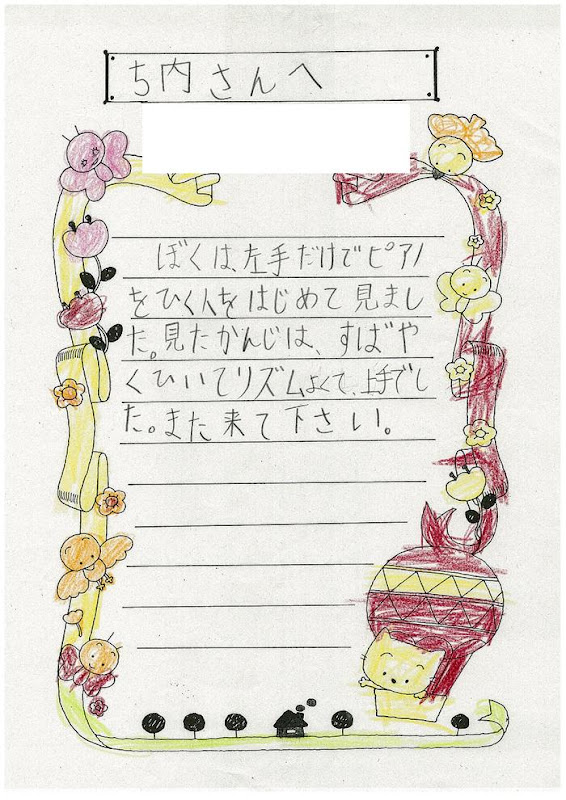 ち内さんへ
ぼくは、左手だけでピアノ
をひく人をはじめて見まし
た。見たかんじは、すばや
くひいてリズムよくて、上手でし
た。また来て下さい。